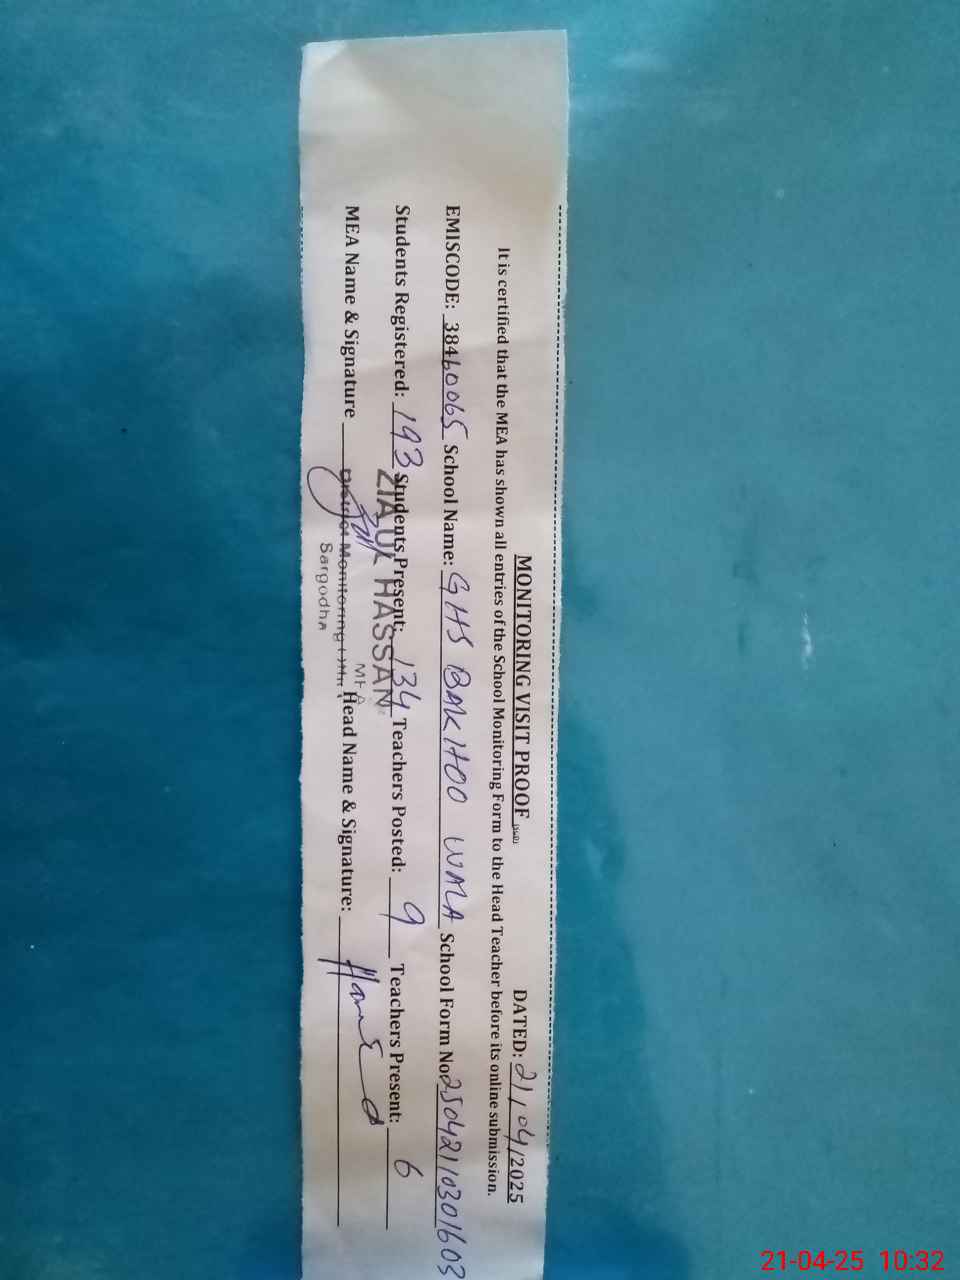 MONITORING VISIT PROOF (SGD) DATED: 21/04/2025
It is certified that the MEA has shown all entries of the School Monitoring Form to the Head Teacher before its online submission.
EMISCODE: 38460065 School Name: GHS BAKHOO WALA School Form No 25042110301603
Students Registered: 193 Students Present: 134 Teachers Posted: 9 Teachers Present: 6
ZIA UL HASSAN
MEA
MEA Name & Signature District Monitoring Head Name & Signature:
Sargodha
21-04-25 10:32